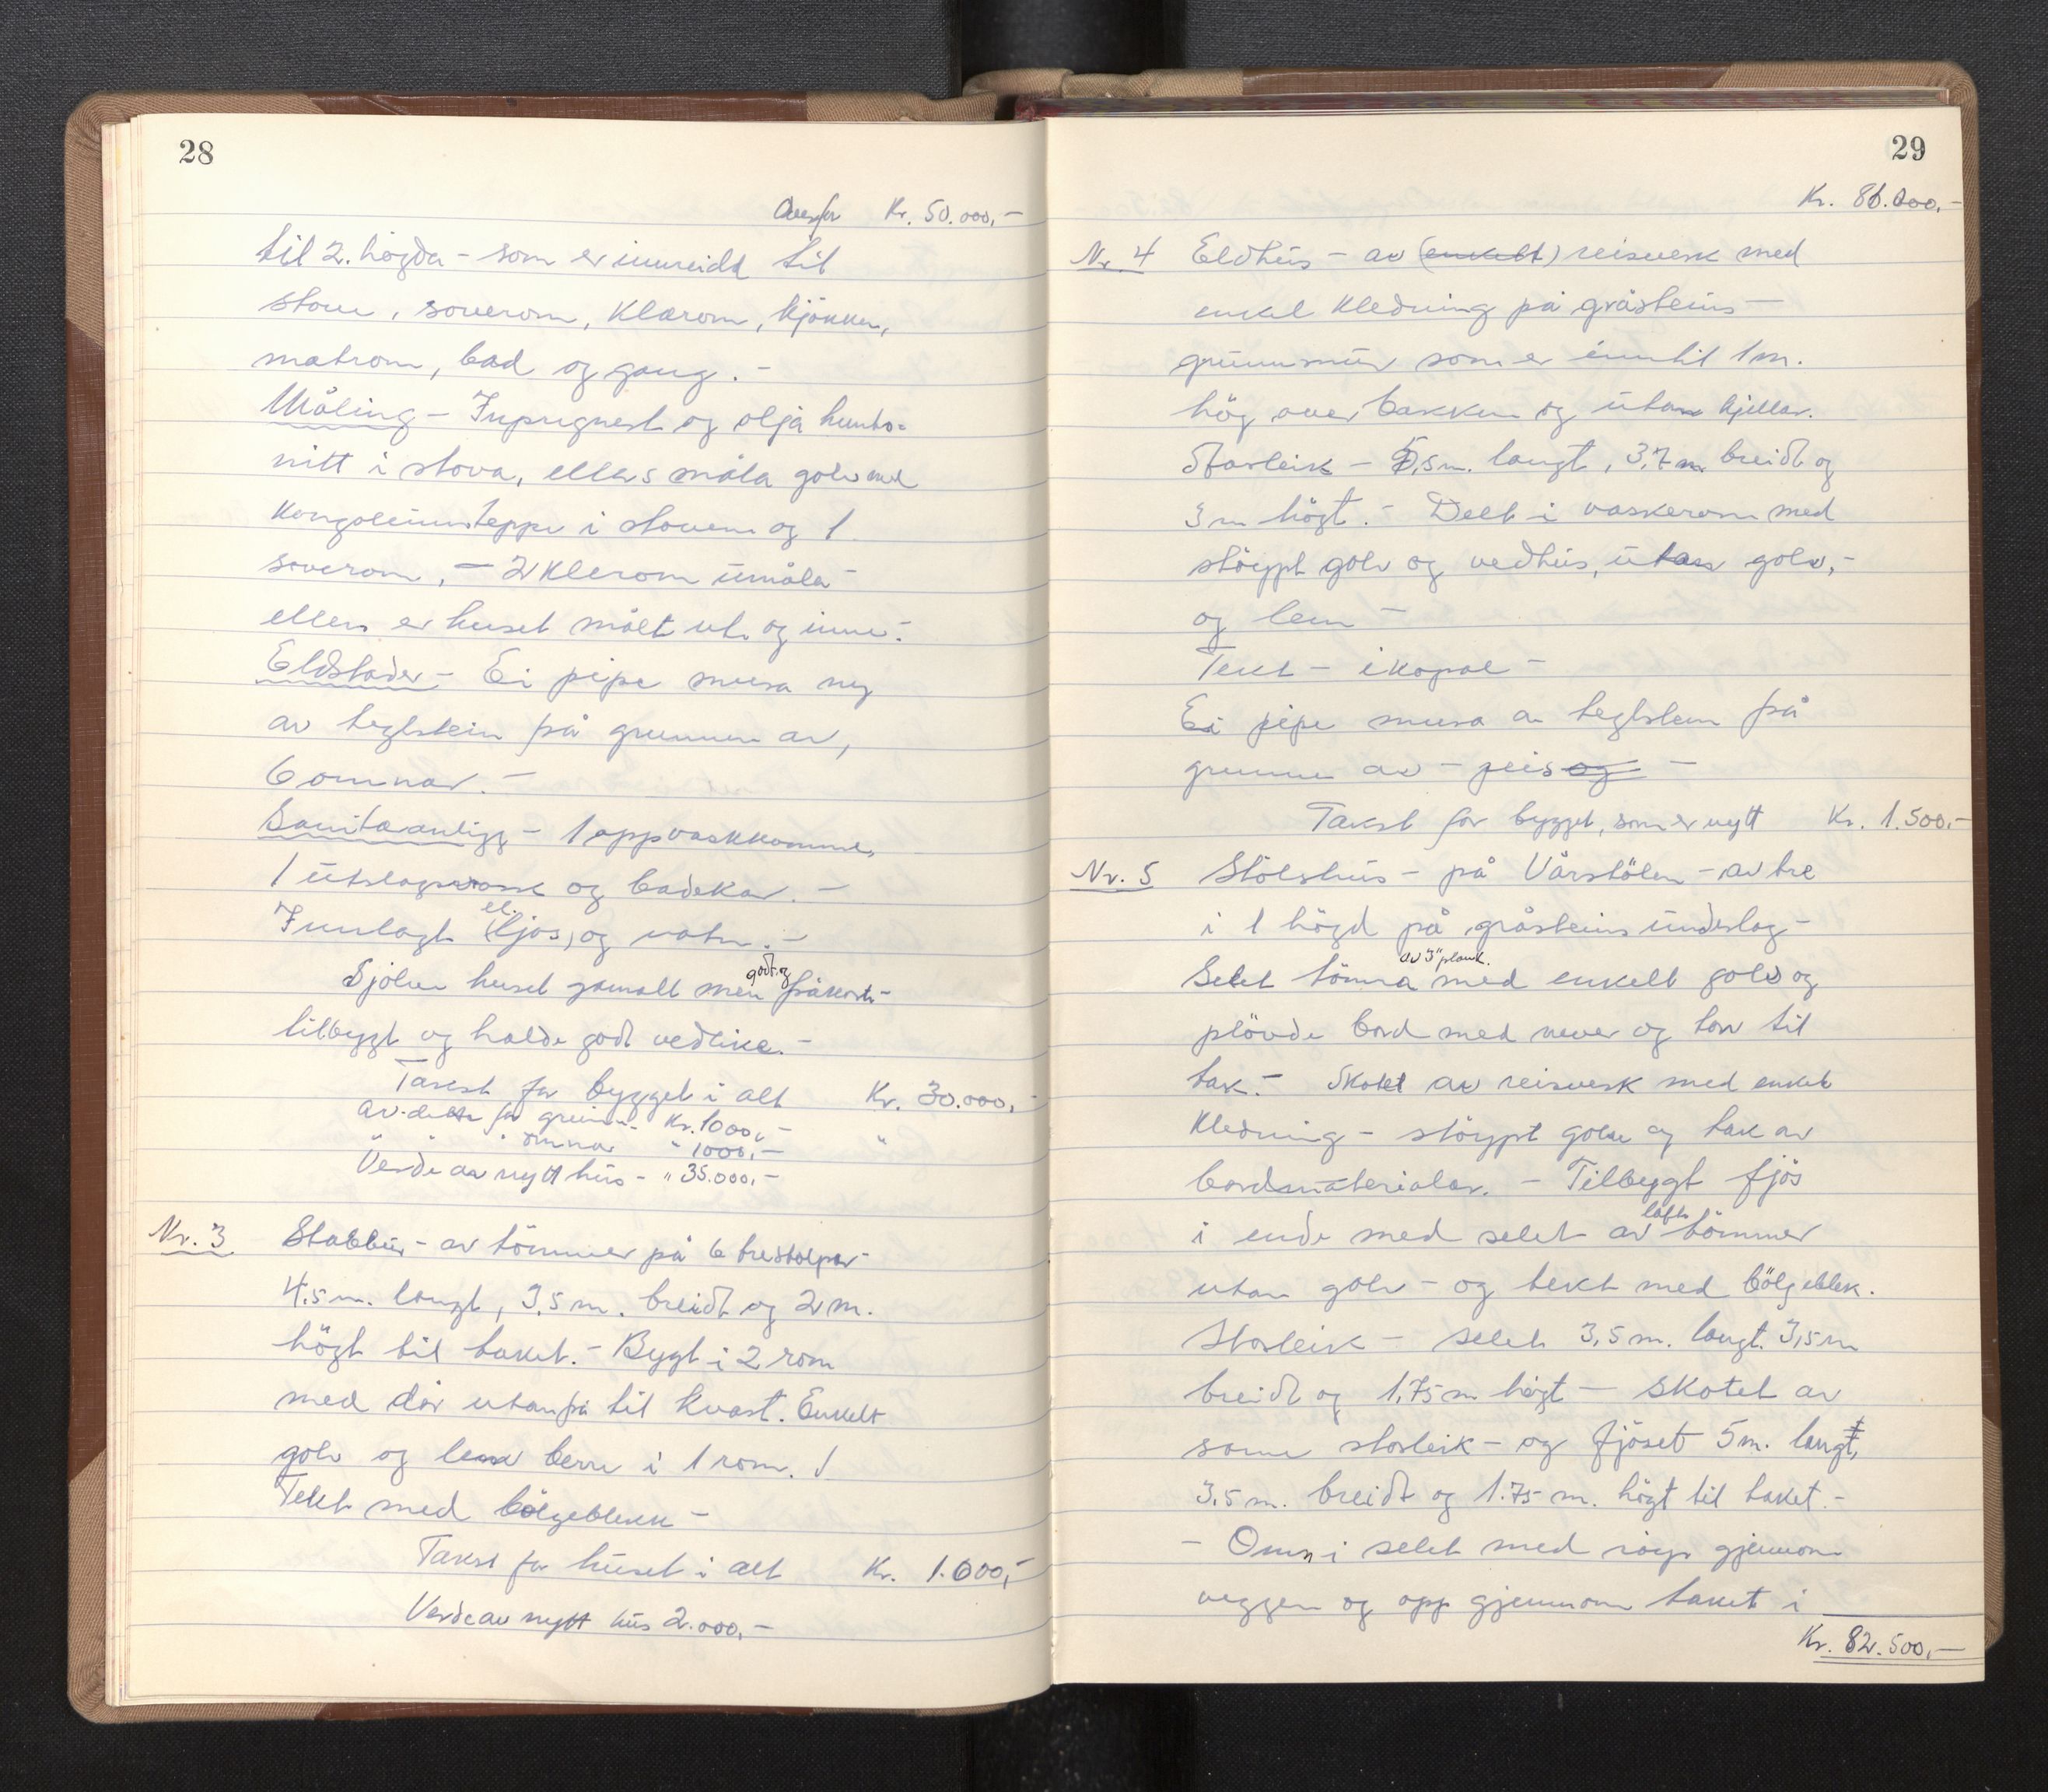 28
Overfor Kr. 50.000,-
til 2. högda - som er innreidd til
stove, soverom, klærom, kjökken,
matrom, bad og gang. -
Måling - Inpregnert og olja hunto-
nitt i stova, ellers måla golv med
Kongoleumsteppe i stovene og 1
soverom, - 2 klerom umåla
ellers er huset målt ute og inne -
Eldstader - Ei pipe mura ny
av teglstein på grunnen av,
6 omnar. -
Sanitæranlegg - 1 oppvaskkomme,
1 utslagsvask og badekar. -
Innlagt (el. ljos) og vatn. -
Sjölve huset gamalt men godt og påkosta -
tilbygt og halde godt vedlike. -
Takst for bygget i alt Kr. 30.000,-
av dette for grunn - Kr. 1000,-
" " " omnar " 1000,- "
Verde av nytt hus - " 35.000,-
Nr. 3 Stabbur - av tömmer på 6 trestolpar -
4,5 m. langt, 3,5 m. breidt og 2 m.
högt til taket. - Bygt i 2 rom
med dör utanfrå til kvart. Enkelt
golv og lem berre i 1 rom.
Tekt med bölgeblekk -
Takst for huset i alt Kr. 1.000,-
Verde av nytt hus 2.000,-
29
Kr. 81.000,-
Nr 4 Eldhus - av (enkelt) reisverk med
enkel kledning på gråsteins -
grunnmur som er inntil 1 m.
hög over bakken og utan kjellar.
Storleik - 5,5 m. langt, 3,7 m breidt og
3 m högt. - Delt i vaskerom med
stöypt golv og vedhus, utan golv, -
og lem -
Tekt - ikopal -
Ei pipe mura av teglstein på
grunnen av - peis og -
Takst for bygget, som er nytt Kr. 1.500,-
Nr. 5 Stölshus - på Vårstölen - av tre
i 1 högd på gråsteins underlag -
Selet tömra av 3" plank. med enkelt golv og
plöyde bord med never og torv til
tak. - Skotet av reisverk med enkel
kledning - stöypt golv og tak av
bordmaterialer. - Tilbygt fjös
i ende med selet av lafte tömmer
utan golv - og tekt med bölgeblek.
Storleik - selet 3,5 m. langt. 3,5 m
breidt og 1,75 m högt - skotet av
same storleik - og fjöset 5 m. langt,
3,5 m. breidt og 1.75 m. högt til taket. -
- Omn i selet med röyr gjennom
veggen og opp gjennom taket i
Kr. 82.500,-